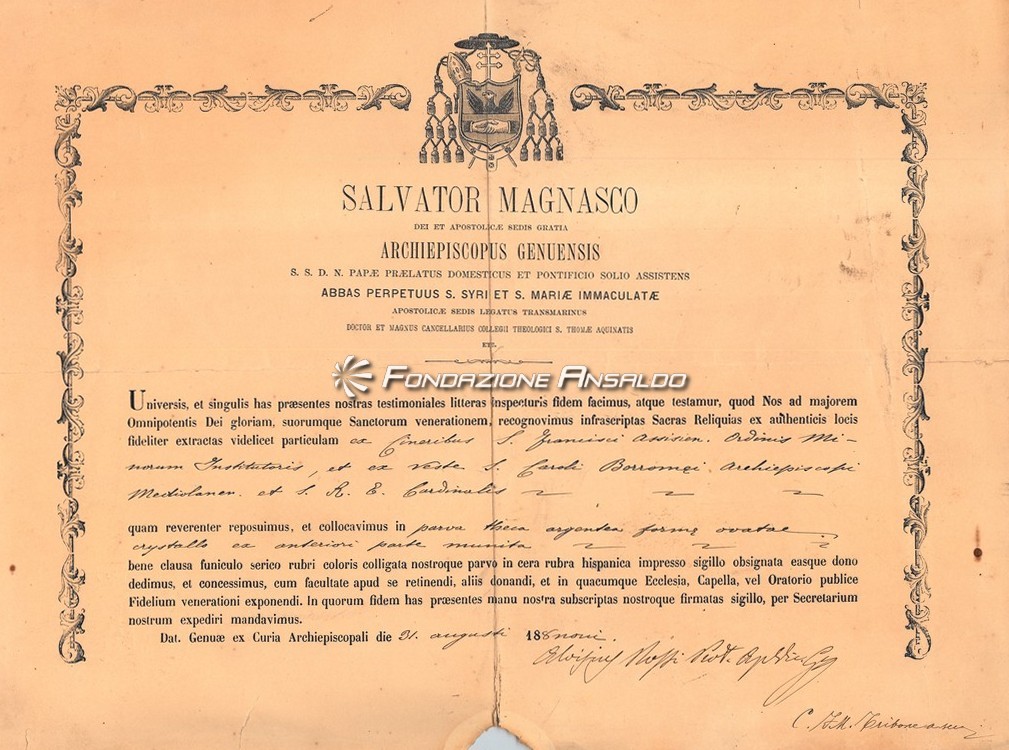 SALVATOR MAGNASCO
DEI ET APOSTOLICÆ SEDIS GRATIA
ARCHIEPISCOPUS GENUENSIS
S. S. D. N. PAPÆ PRÆLATUS DOMESTICUS ET PONTIFICIO SOLIO ASSISTENS
ABBAS PERPETUUS S. SYRI ET S. MARIÆ IMMACULATÆ
APOSTOLICÆ SEDIS LEGATUS TRANSMARINUS
DOCTOR ET MAGNUS CANCELLARIUS COLLEGII THEOLOGICI S. THOMÆ AQUINATIS
ETC.
FONDAZIONE ANSALDO
Universis, et singulis has præsentes nostras testimoniales litteras inspecturis fidem facimus, atque testamur, quod Nos ad majorem
Omnipotentis Dei gloriam, suorumque Sanctorum venerationem, recognovimus infrascriptas Sacras Reliquias ex authenticis locis
fideliter extractas videlicet particulam ex Cineribus S. Francisci Assisien. Ordinis Mi-
norum Institutoris, et ex veste S. Caroli Borromei Archiepiscopi
Mediolanen. et S. R. E. Cardinalis
quam reverenter reposuimus, et collocavimus in parva theca argentea formæ ovatae
crystallo ex anteriori parte munita
bene clausa funiculo serico rubri coloris colligata nostroque parvo in cera rubra hispanica impresso sigillo obsignata easque dono
dedimus, et concessimus, cum facultate apud se retinendi, aliis donandi, et in quacumque Ecclesia, Capella, vel Oratorio publice
Fidelium venerationi exponendi. In quorum fidem has præsentes manu nostra subscriptas nostroque firmatas sigillo, per Secretarium
nostrum expediri mandavimus.
Dat. Genuæ ex Curia Archiepiscopali die 31. augusti 188noni.
Aloisius Rossi
C. Tribone